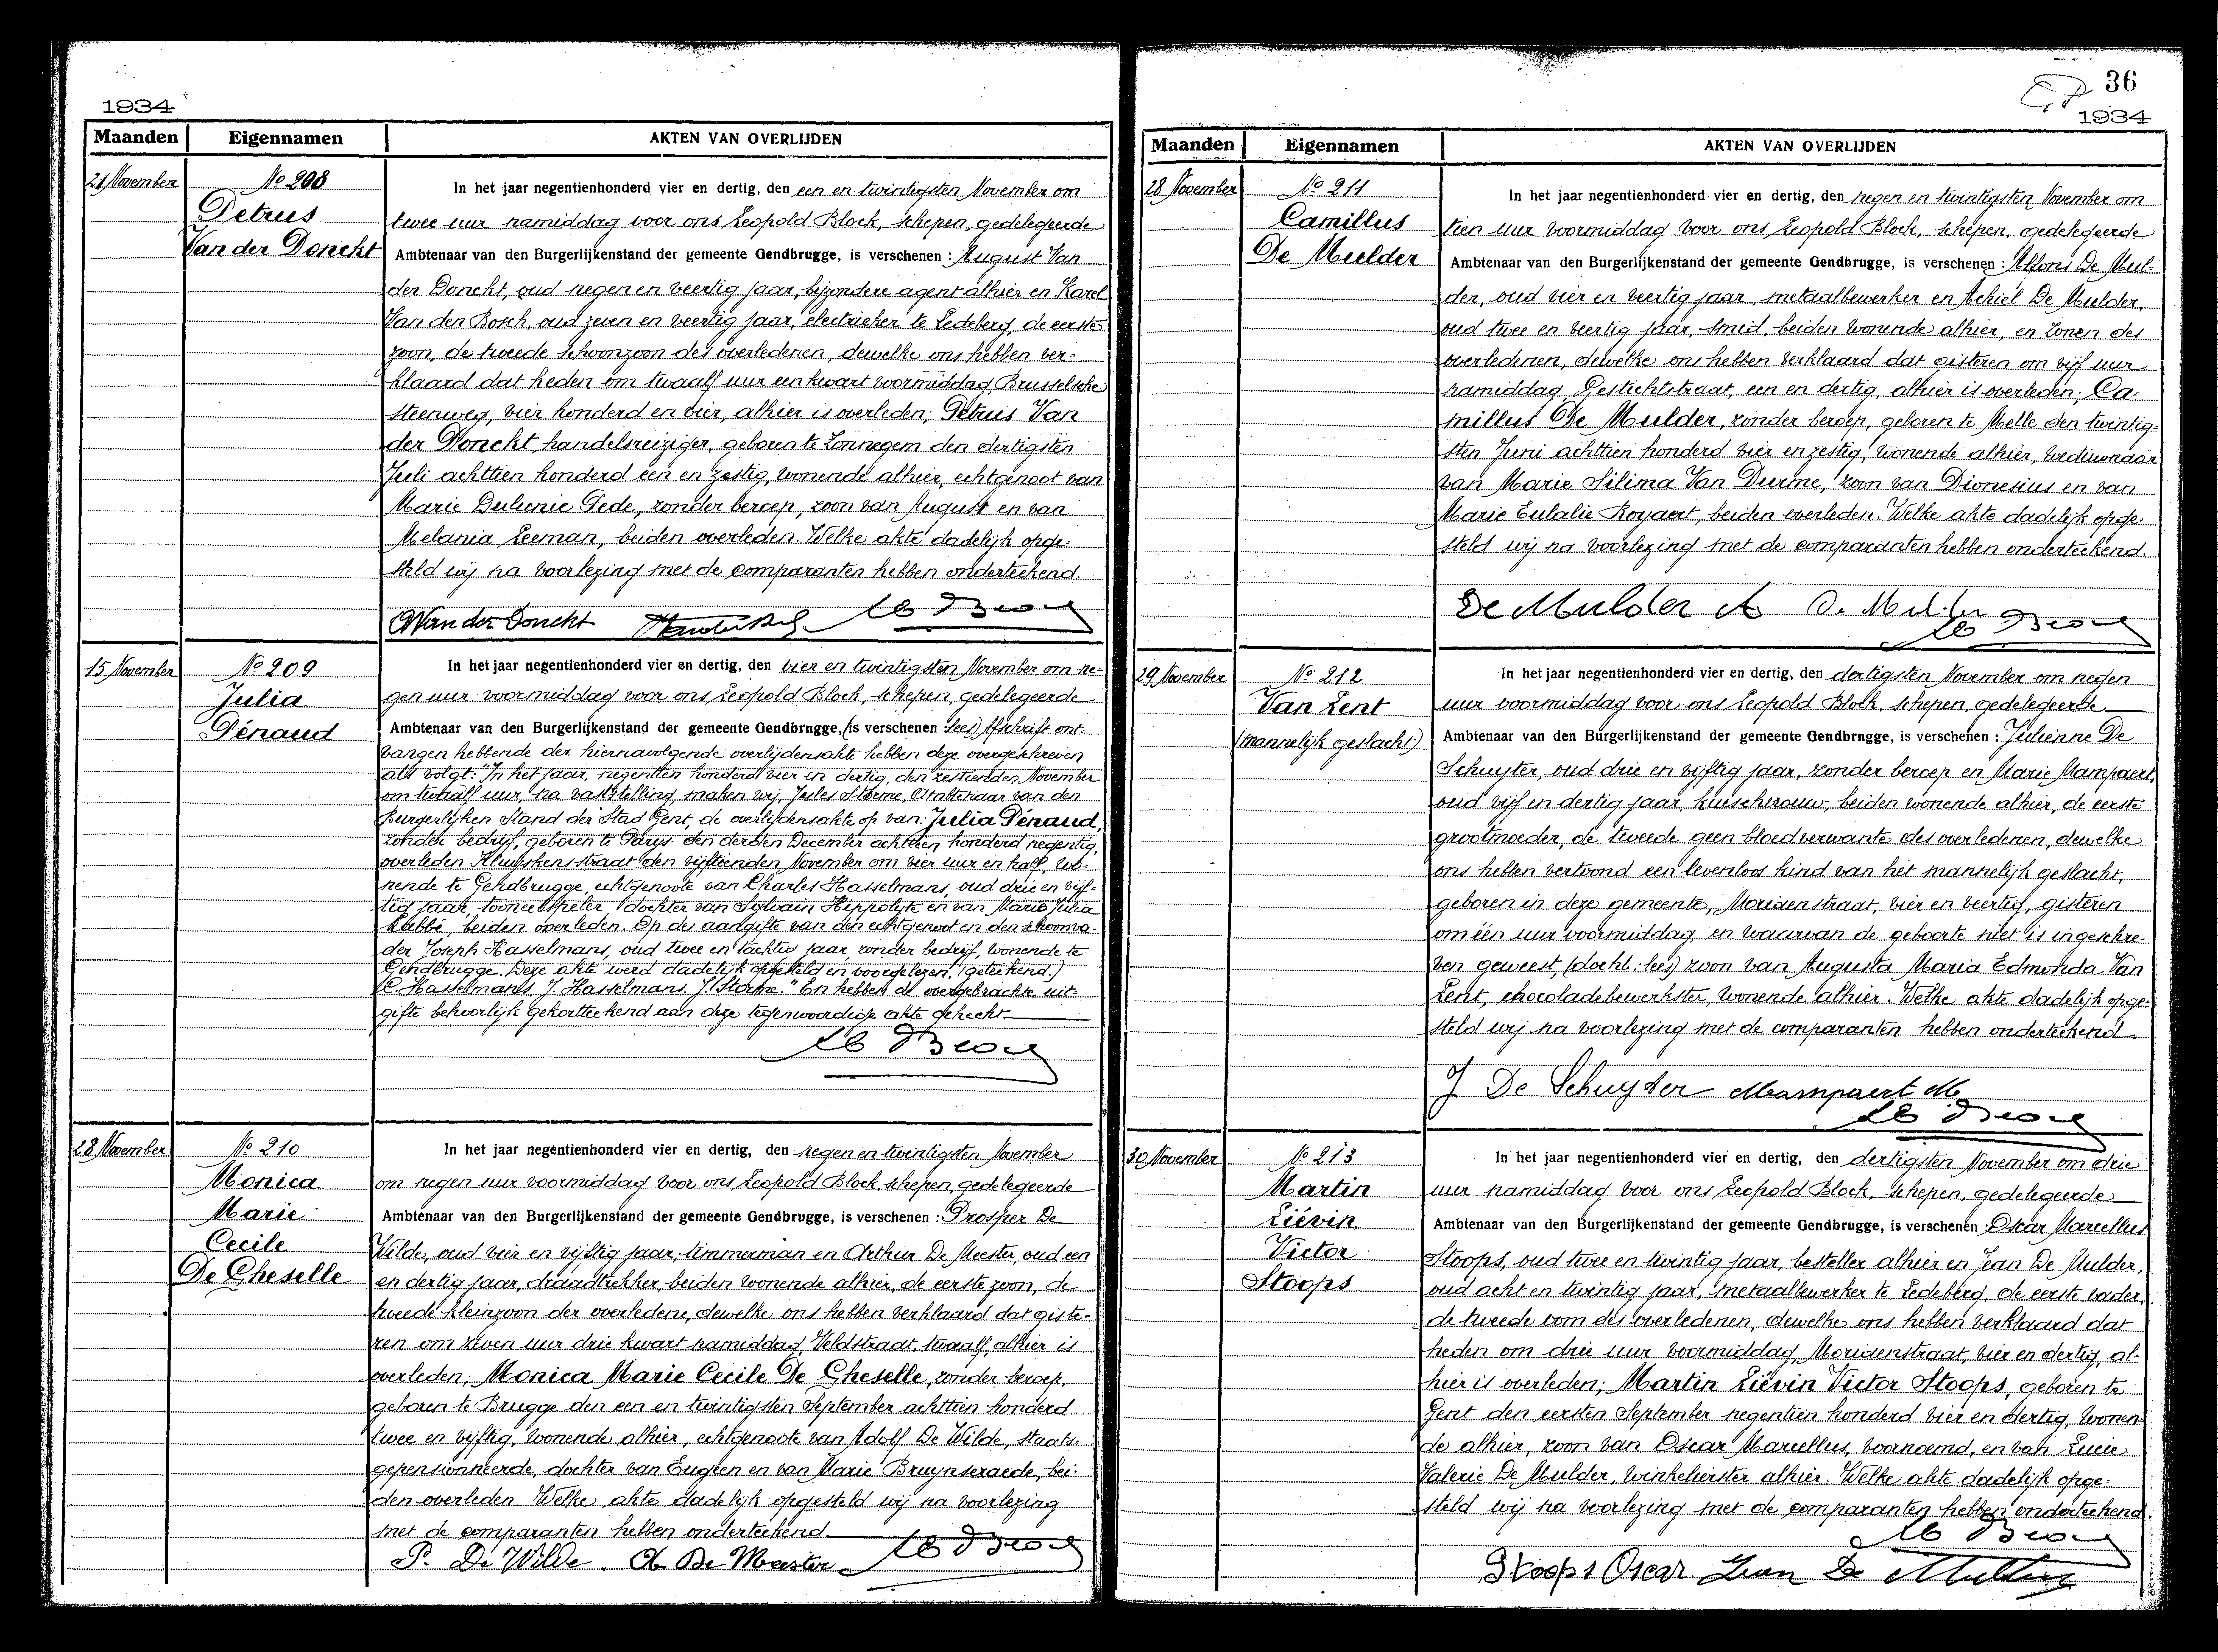 1934
Maanden Eigennamen AKTEN VAN OVERLIJDEN
21 November
No 208
Petrus
Van der Donckt
In het jaar negentienhonderd vier en dertig, den een en twintigsten November om
twee uur namiddag voor ons Leopold Block, schepen, gedelegeerde
Ambtenaar van den Burgerlijkenstand der gemeente Gendbrugge, is verschenen : August Van
der Donckt, oud negen en veertig jaar, bijzondere agent alhier en Karel
Van den Bosch, oud zeven en veertig jaar, electrieker te Ledeberg, de eerste
zoon, de tweede schoonzoon des overledenen, dewelke ons hebben ver-
klaard dat heden om twaalf uur een kwart voormiddag, Brusselsche
steenweg, vier honderd en vier, alhier is overleden; Petrus Van
der Donckt, handelsreiziger, geboren te Zonnegem den dertigsten
Juli achttien honderd een en zestig, wonende alhier, echtgenoot van
Marie Dulcenie Gede, zonder beroep, zoon van August en van
Melania Leeman, beiden overleden. Welke akte dadelijk opge-
steld wij na voorlezing met de comparanten hebben onderteekend.
Van der Donckt
15 November
No 209
Julia
Pénaud
In het jaar negentienhonderd vier en dertig, den vier en twintigsten November om ne-
gen uur voormiddag voor ons Leopold Block, schepen, gedelegeerde
Ambtenaar van den Burgerlijkenstand der gemeente Gendbrngge, (is verschenen lees) Afschrift ont-
vangen hebbende der hiernavolgende overlijdensakte hebben deze overgeschreven
als volgt: "In het jaar negentien honderd vier en dertig, den zestienden November
om twaalf uur, na vaststelling, maken wij, Jules Storme, Ambtenaar van den
Burgerlijken Stand der Stad Gent, de overlijdensakte op van: Julia Pénaud,
zonder bedrijf, geboren te Parys den derden December achttien honderd negentig,
overleden Kluyskensstraat den vijftienden November om vier uur en half, wo-
nende te Gendbrugge, echtgenoote van Charles Hasselmans, oud drie en vijf-
tig jaar, tooneelspeler, dochter van Sylvain Hippolyte en van Marie Julia
Labbé, beiden overleden. Op de aangifte van den echtgenoot en den schoonva-
der Joseph Hasselmans, oud twee en tachtig jaar, zonder bedrijf, wonende te
Gendbrugge. Deze akte werd dadelijk opgesteld en voorgelezen. (geteekend.)
C. Hasselmans J. Hasselmans. J. Storme." En hebben de overgebrachte uit-
gifte behoorlijk gekortteekend aan deze tegenwoordige akte gehecht.
28 November
No 210
Monica
Marie
Cecile
De Gheselle
In het jaar negentienhonderd vier en dertig, den negen en twintigsten November
om negen uur voormiddag voor ons Leopold Block, schepen, gedelegeerde
Ambtenaar van den Burgerlijkenstand der gemeente Gendbrugge, is verschenen : Prosper De
Wilde, oud vier en vijftig jaar, timmerman en Arthur De Meester, oud een
en dertig jaar, draadtrekker, beiden wonende alhier, de eerste zoon, de
tweede kleinzoon der overledene, dewelke ons hebben verklaard dat giste-
ren om zeven uur drie kwart namiddag, Veldstraat, twaalf, alhier is
overleden; Monica Marie Cecile De Gheselle, zonder beroep,
geboren te Brugge den een en twintigsten September achttien honderd
twee en vijftig, wonende alhier, echtgenoote van Adolf De Wilde, staats-
gepensionneerde, dochter van Eugeen en van Marie Bruynseraede, bei-
den overleden. Welke akte dadelijk opgesteld wij na voorlezing
met de comparanten hebben onderteekend.
P. De Wilde. A De Meester
36
1934
Maanden Eigennamen AKTEN VAN OVERLIJDEN
28 November
No 211
Camillus
De Mulder
In het jaar negentienhonderd vier en dertig, den negen en twintigsten November om
tien uur voormiddag voor ons Leopold Block, schepen, gedelegeerde
Ambtenaar van den Burgerlijkenstand der gemeente Gendbrugge, is verschenen : Alfons De Mul-
der, oud vier en veertig jaar, metaalbewerker en Achiel De Mulder,
oud twee en veertig jaar, smid, beiden wonende alhier, en zonen des
overledenen, dewelke ons hebben verklaard dat gisteren om vijf uur
namiddag, Gestichtstraat, een en dertig, alhier is overleden; Ca-
millus De Mulder, zonder beroep, geboren te Melle den twintig-
sten Juni achttien honderd vier en zestig, wonende alhier, weduwnaar
van Marie Silima Van Durme, zoon van Dionesius en van
Marie Eulalie Royaert, beiden overleden. Welke akte dadelijk opge-
steld wij na voorlezing met de comparanten hebben onderteekend.
De Mulder A De Mulder
29 November
No 212
Van Lent
(mannelijk geslacht)
In het jaar negentienhonderd vier en dertig, den dertigsten November om negen
uur voormiddag voor ons Leopold Block, schepen, gedelegeerde
Ambtenaar van den Burgerlijkenstand der gemeente Gendbrngge, is verschenen : Julienne De
Schuyter, oud drie en vijftig jaar, zonder beroep en Marie Mampaert,
oud vijf en dertig jaar, kuischvrouw, beiden wonende alhier, de eerste
grootmoeder, de tweede geen bloedverwante des overledenen, dewelke
ons hebben vertoond een levenloos kind van het mannelijk geslacht,
geboren in deze gemeente, Moriaenstraat, vier en veertig, gisteren
om één uur voormiddag, en waarvan de geboorte niet is ingeschre-
ven geweest, (docht: lees) zoon van Augusta Maria Edmonda Van
Lent, chocoladebewerkster, wonende alhier. Welke akte dadelijk opge-
steld wij na voorlezing met de comparanten hebben onderteekend.
J De Schuyter Mampaert M
30 November
No 213
Martin
Liévin
Victor
Stoops
In het jaar negentienhonderd vier en dertig, den dertigsten November om drie
uur namiddag voor ons Leopold Block, schepen, gedelegeerde
Ambtenaar van den Burgerlijkenstand der gemeente Gendbrugge, is verschenen : Oscar Marcellus
Stoops, oud twee en twintig jaar, besteller alhier en Jean De Mulder,
oud acht en twintig jaar, metaalbewerker te Ledeberg, de eerste vader,
de tweede oom des overledenen, dewelke ons hebben verklaard dat
heden om drie uur voormiddag, Moriaenstraat, vier en dertig, al-
hier is overleden; Martin Liévin Victor Stoops, geboren te
Gent den eersten September negentien honderd vier en dertig, wonen-
de alhier, zoon van Oscar Marcellus, voornoemd, en van Lucie
Valerie De Mulder, winkelierster alhier. Welke akte dadelijk opge-
steld wij na voorlezing met de comparanten hebben onderteekend.
Stoops Oscar Jean De Mulder